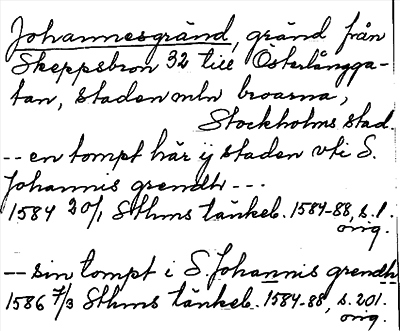 Johannesgränd, gränd från
Skeppsbron 32 till Österlångga-
tan, staden mln broarna,
Stockholms stad.
-- en tompt här ÿ staden vti S.
Johannis grendh ---
1584 20/1 Sthms tänkeb. 1584-88, s.1.
orig.
-- sin tompt i S. Johannis grendh
1586 7/3 Sthms tänkeb. 1584-88, s. 201.
orig.